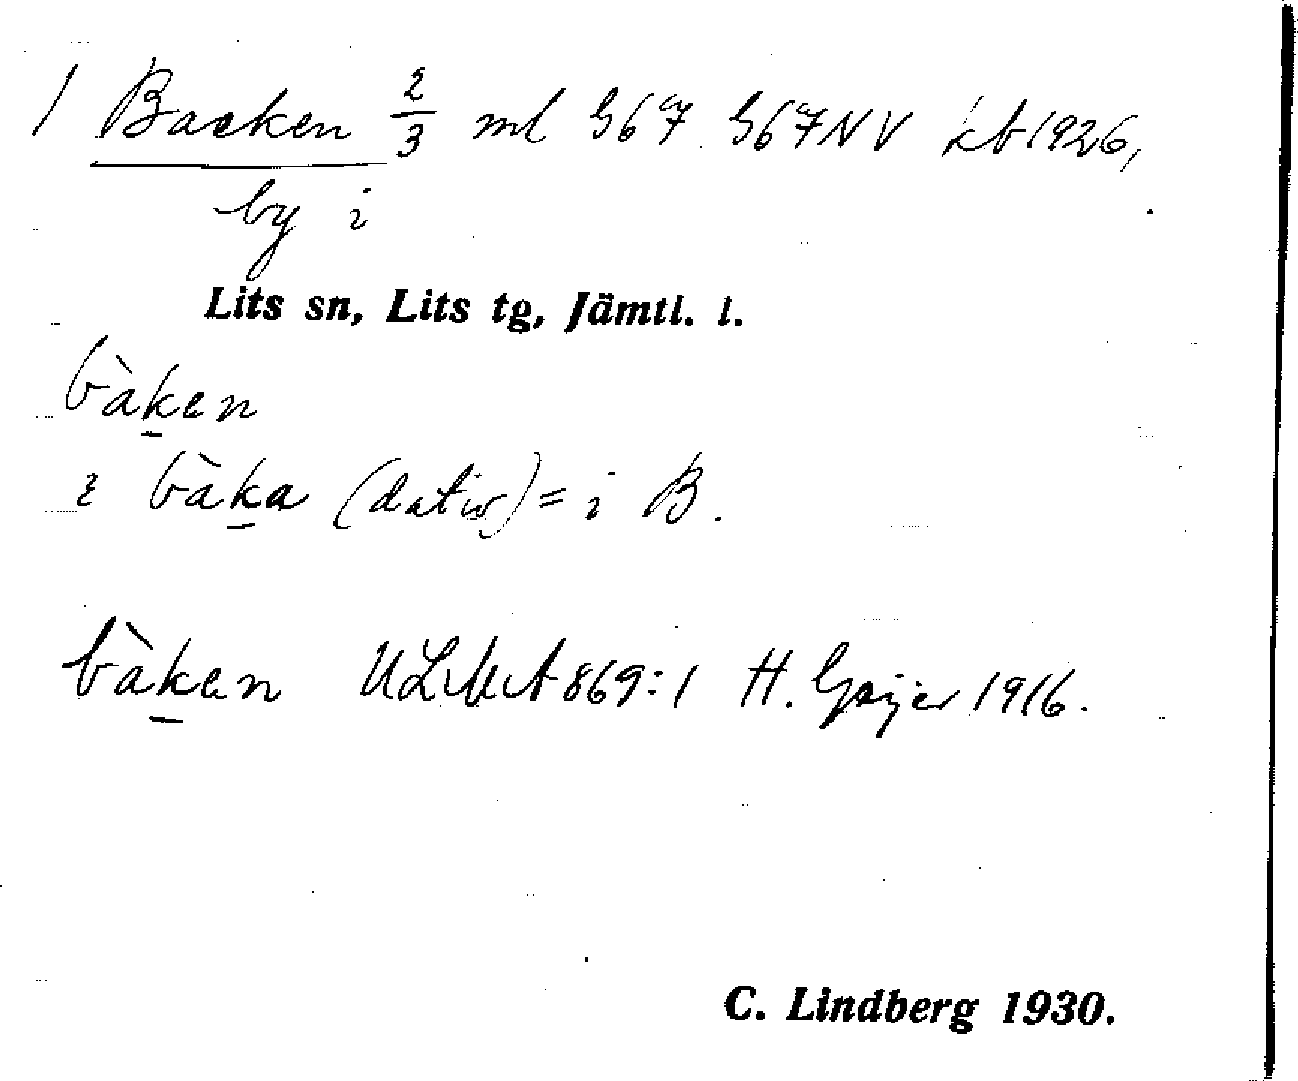 1 Backen 2/3 ml G67 G67NV kb 1926,
by i
Lits sn, Lits tg, Jämtl. l.
bàk̠en
i bàk̠a (dativ) = i B.
bàk̠en ULMA 869:1 H. Geijer 1916.
C. Lindberg 1930.